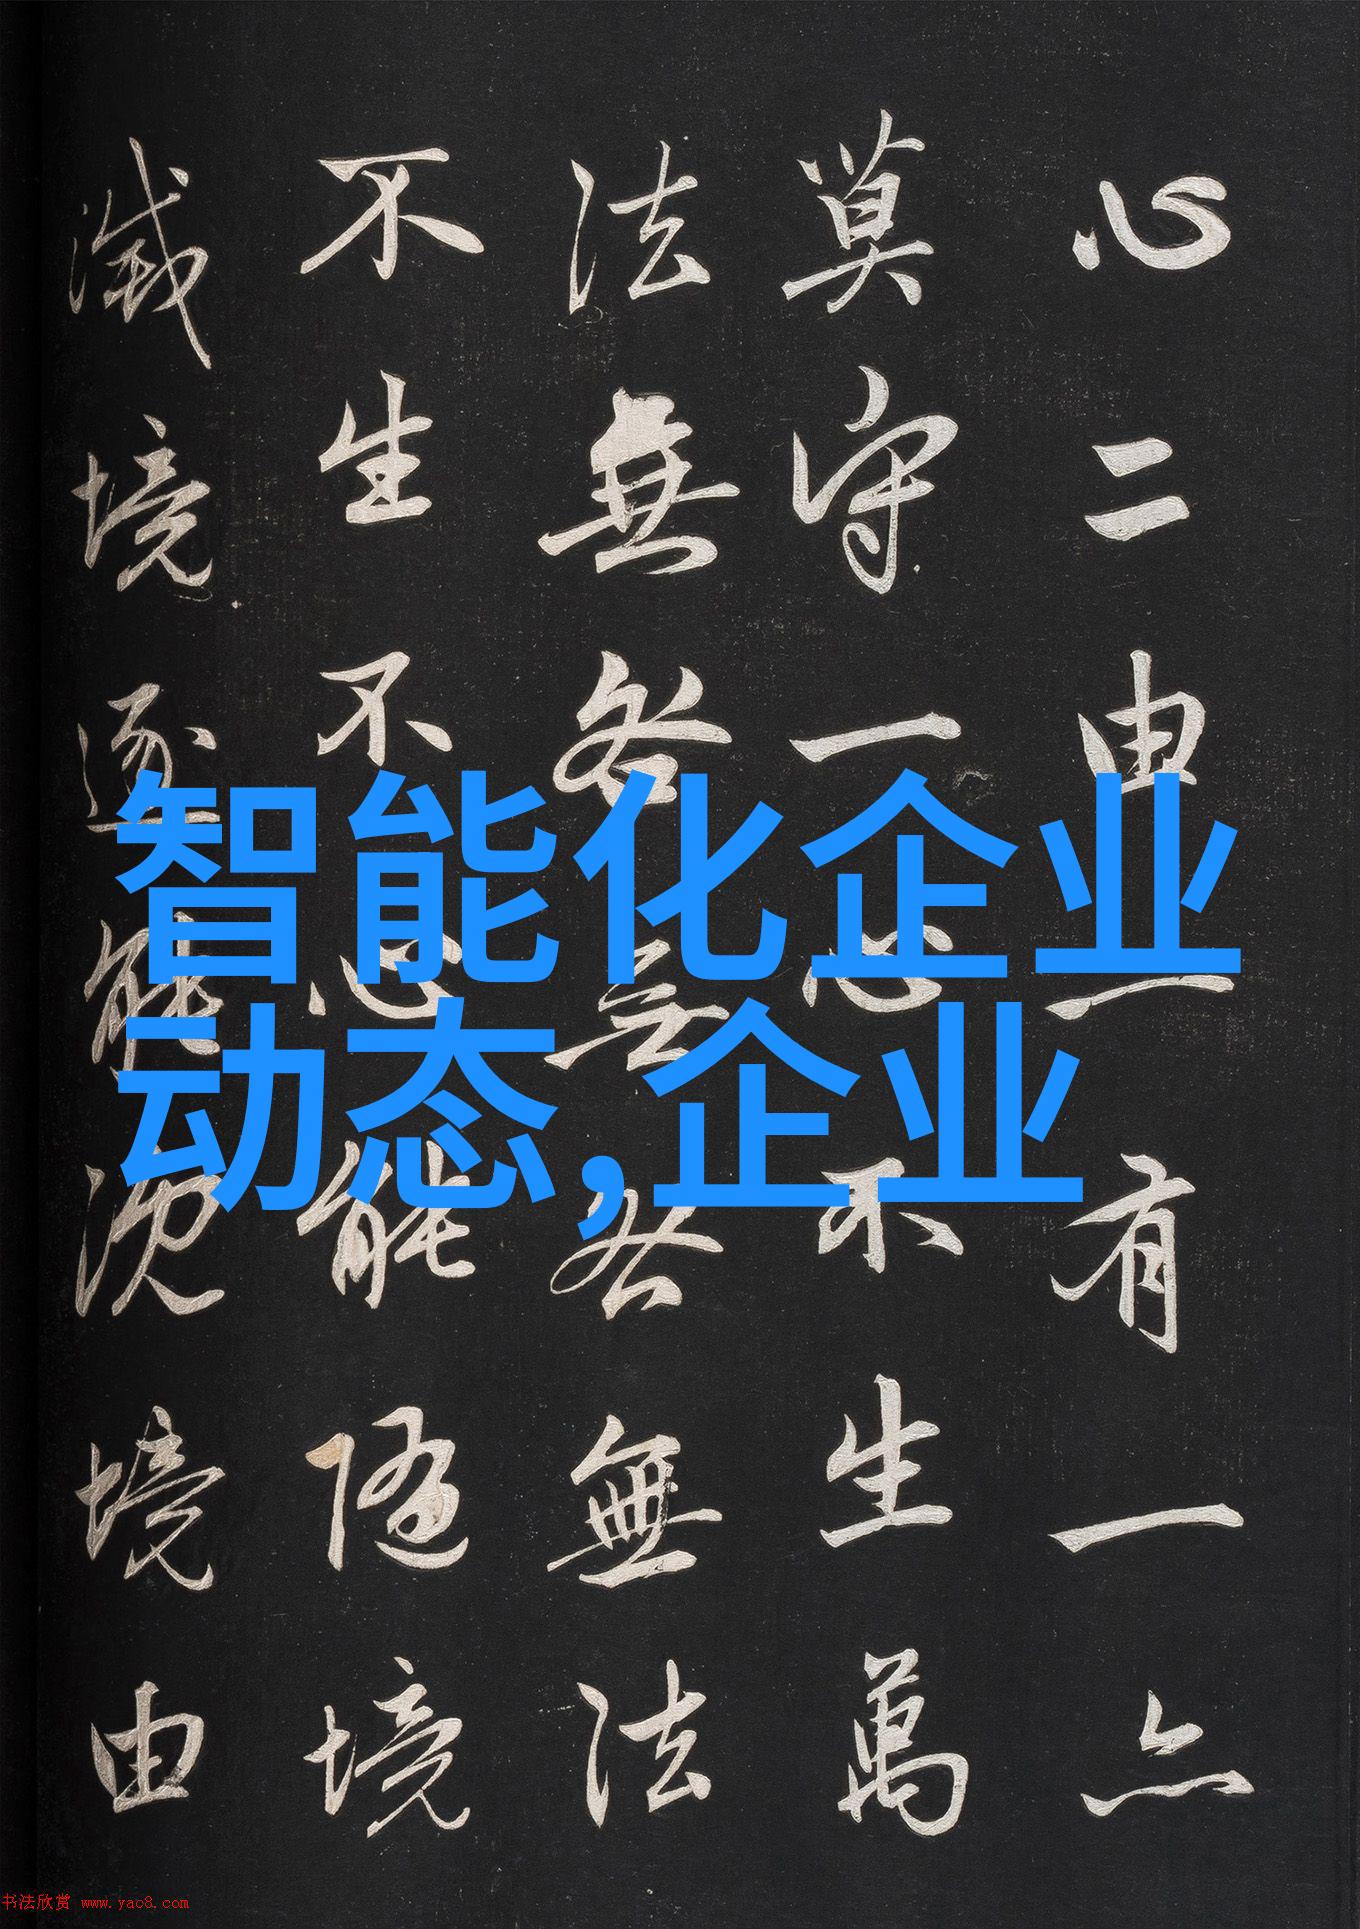 心二由一有一亦
莫守一心不生萬
法無咎无咎無法
不生不心能随境
滅境逐能沉境由
智能化企业
动态,企业
书法欣赏 www.yac8.com